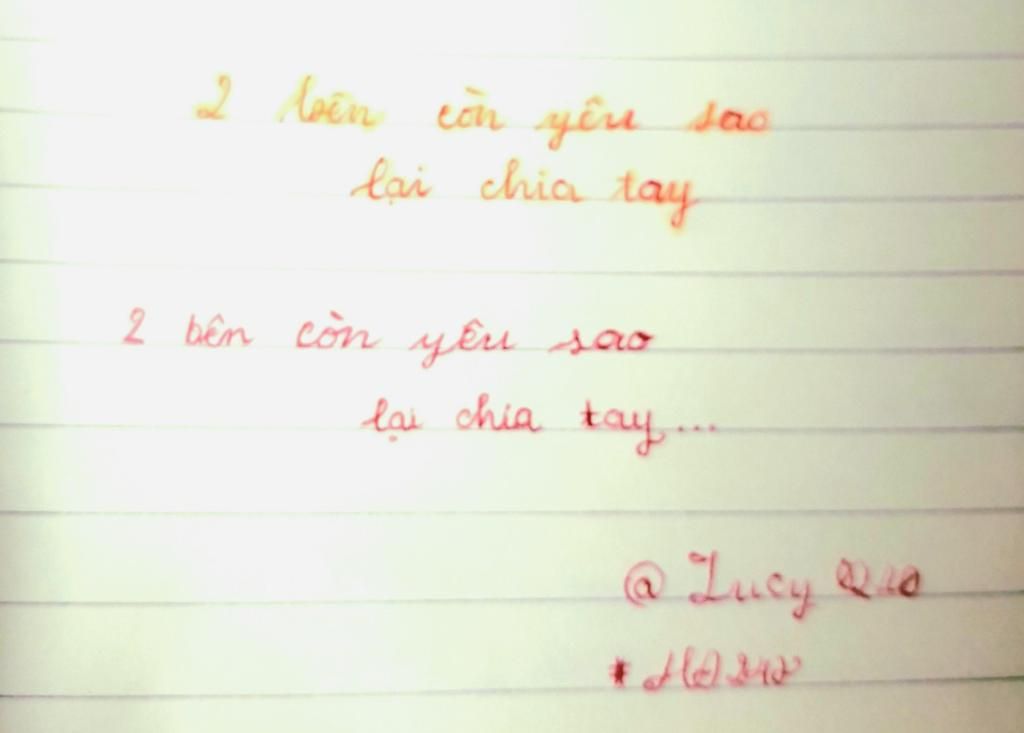 2 bên còn yêu sao
lại chia tay
2 bên còn yêu sao
lại chia tay...
@ Lucy